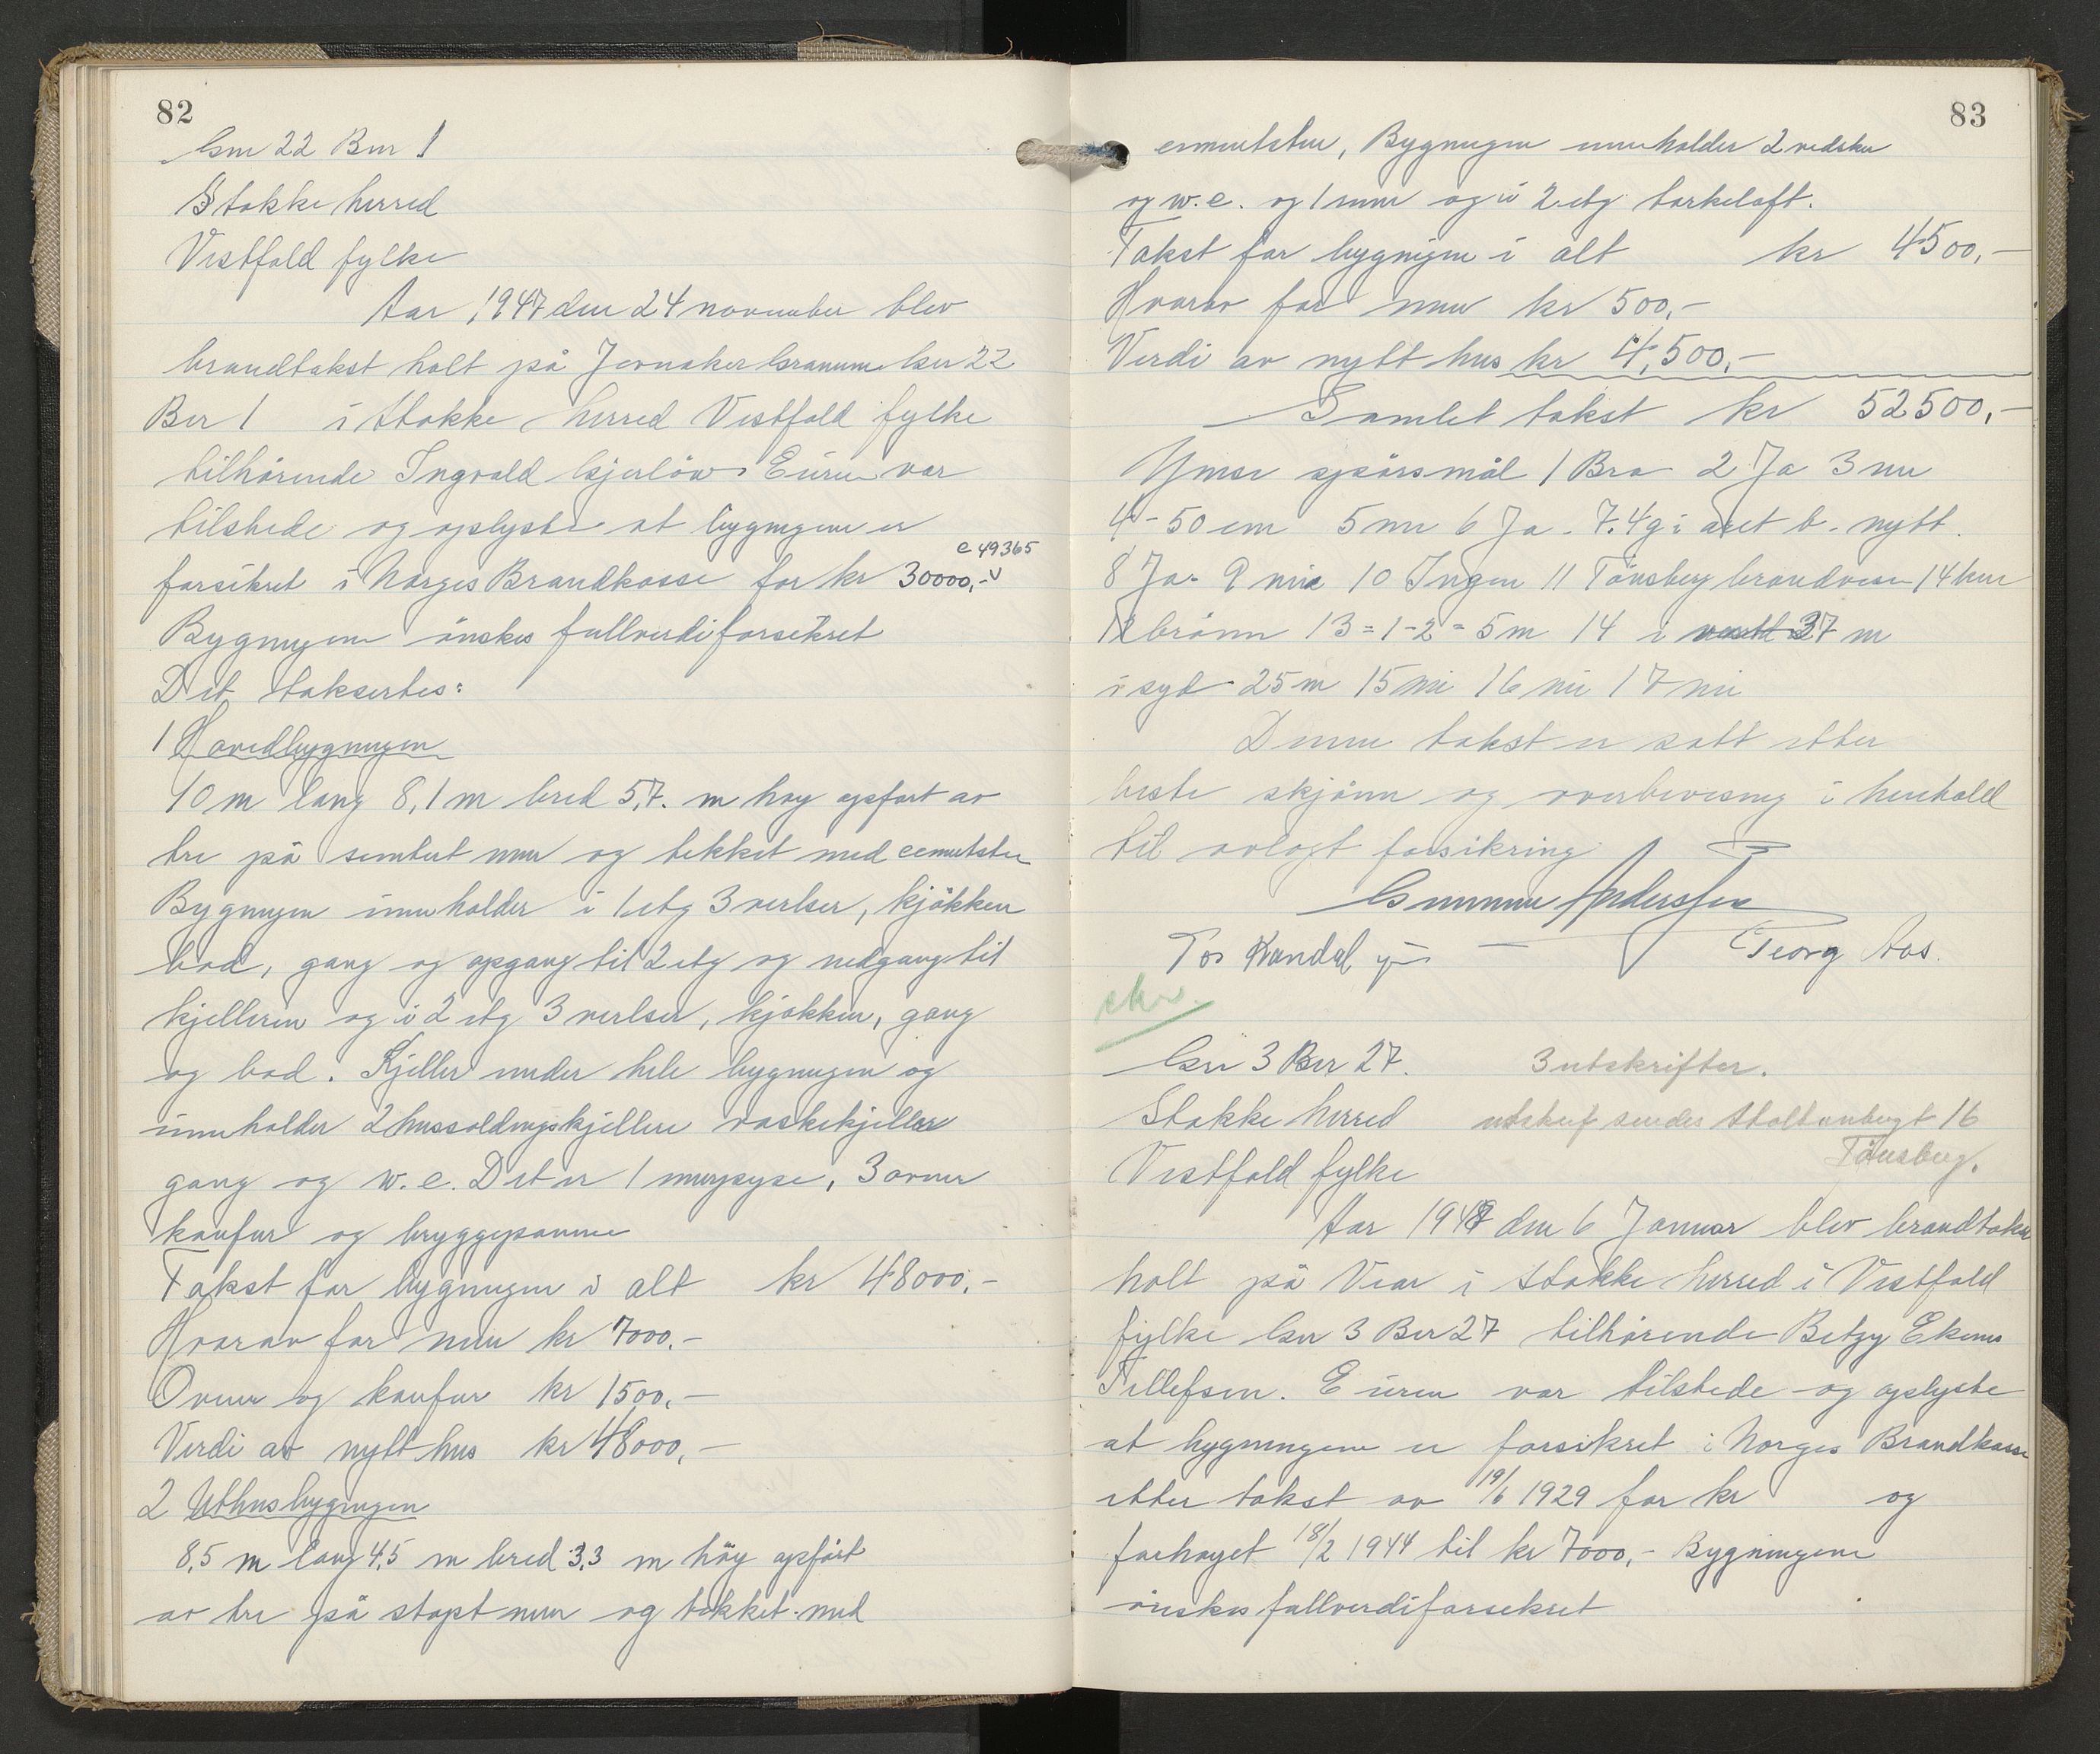 82
Gnr 22 Bnr 1
Stokke herred
Vestfold fylke
Aar 1947 den 24 november blev
brandtakst holt på Jernaker Granum Gnr 22
Bnr 1 i Stokke herred Vestfold fylke
tilhørende Ingvald Gjerløw Eieren var
tilstede og oplyste at bygningene er
c 49365
forsikret i Norges Brandkasse for kr 30000,-
Bygningene ønskes fullverdiforsikret
Det taksertes:
1 Hovedbygningen
10 m lang 8,1 m bred 5,7. m høy opført av
tre på sement mur og tekket med cementsten
Bygningen inneholder i 1 etg 3 verlser, kjøkken
bod, gang og opgang til 2 etg og nedgang til
kjelleren og i 2 etg 3 verlser, kjøkken, gang
og bod. Kjeller under hele bygningen og
inneholder 2 hussoldningskjellere vaskekjeller
gang og w.c. Det er 1 murpipe, 3 ovner
komfur og bryggepanne
Takst for bygningen i alt kr 48000,-
Hvorav for mur kr 7000.-
Ovner og komfur kr 1500,-
Verdi av nytt hus kr 48000,-
2 Uthusbygningen
8,5 m lang 4,5 m bred 3,3 m høy opført
av tre på støpt mur og tekket med
83
cementsten, Bygningen inneholder 2 vedskur
og w.c. og 1 rum og i 2 etg tørkeloft.
Takst for bygningen i alt kr 4500,-
Hvorav for mur kr 500,-
Verdi av nytt hus kr 4,500,-
Samlet takst kr 52500,-
Ymse spørsmål 1 Bra 2 Ja 3 nei
4 - 50 cm 5 nei 6 Ja - 7. 4 g i året b. nytt.
8 Ja - 9 nei 10 Ingen 11 Tønsberg brandvesen 14 km
12 brønn 13 = 1-2 = 5 m 14 i 37 m
i syd 25 m 15 nei 16 nei 17 nei
Denne takst er satt etter
beste skjønn og overbevisning i henhold
til avlagt forsikring
Gunnar Anderssen
Tor Kandal Georg Aas.
skr.
Gnr 3 Bnr 27. 3 utskrifter.
Stokke herred utskrift sendes Stoltenbergt 16
Tønsberg.
Vestfold fylke
Aar 1948 den 6 Januar blev brandtakst
holt på Vear i Stokke herred i Vestfold
fylke Gnr 3 Bnr 27 tilhørende Betzy Ekenes
Tellefsen. Eieren var tilstede og oplyste
at bygningene er forsikret i Norges Brandkasse
etter takst av 19/6 1929 for kr og
forhøyet 18/2 1944 til kr 7000,- Bygningene
ønskes fullverdiforsikret